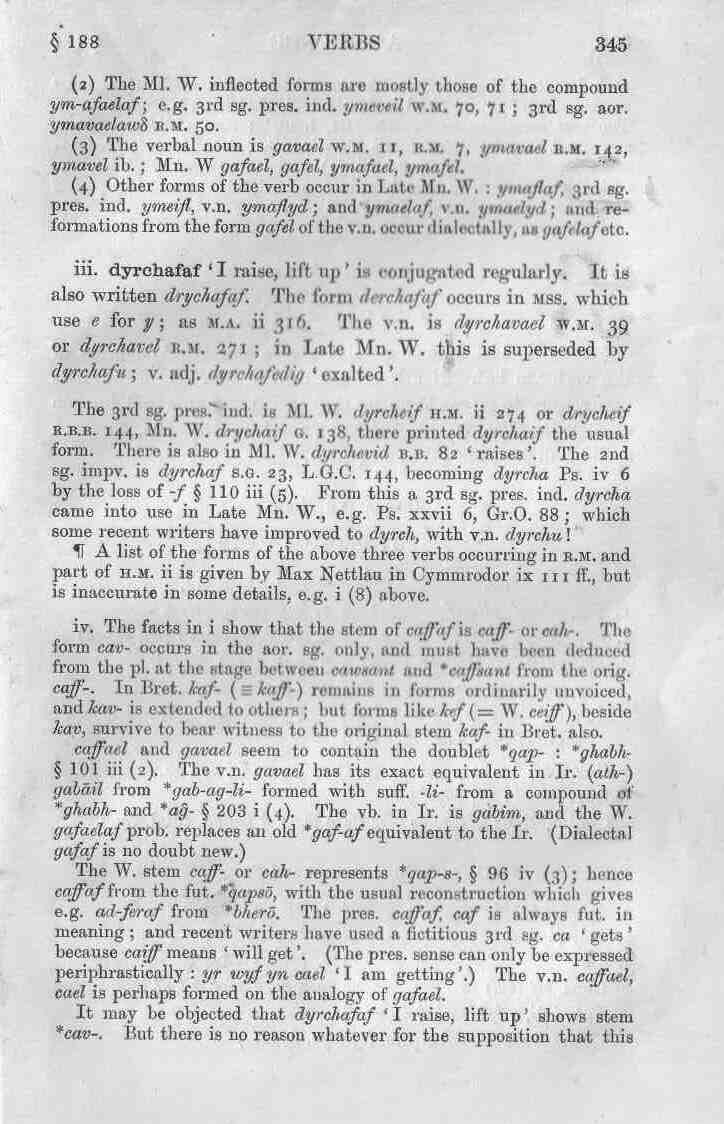 § 188 VERBS 345
(2) The Ml. W. inflected forms are mostly those of the compound
ym-afaelaf; e.g. 3rd sg. pres. ind. ymeveil W.M. 70, 71 ; 3rd sg. aor.
ymavaelawδ R.M. 50.
(3) The verbal noun is gavael W.M. 11, R.M. 7, ymavael R.M. 142,
ymavel ib. ; Mn. W gafael, gafel, ymafael, ymafel.
(4) Other forms of the verb occur in Late Mn. W. : ymaflaf, 3rd sg.
pres. ind. ymeifl, v.n. ymaflyd ; and ymaelaf, v.n. ymaelyd ; and re-
formations from the form gafel of the v.n. occur dialectally, as gafelaf etc.
iii. dyrchafaf ‘I raise, lift up’ is conjugated regularly. It is
also written drychafaf. The form derchafaf occurs in MSS. which
use e for y ; as M.A. ii 316. The v.n. is dyrchavael W.M. 39
or dyrchavel R.M. 271 ; in Late Mn. W. this is superseded by
dyrchafu ; v. adj. dyrchafedig ‘exalted’.
The 3rd sg. pres. ind. is Ml. W. dyrcheif H.M. ii 274 or drycheif
R.B.B. 144, Mn. W. drychaif G. 138, there printed dyrchaif the usual
form. There is also in Ml. W. dyrchevid B.B. 82 ‘raises’. The 2nd
sg. impv. is dyrchaf S.G. 23, L.G.C. 144, becoming dyrcha Ps. iv 6
by the loss of -f § 110 iii (5). From this a 3rd sg. pres. ind. dyrcha
came into use in Late Mn. W., e.g. Ps. xxvii 6, Gr.O. 88 ; which
some recent writers have improved to dyrch, with v.n. dyrchu !
¶ A list of the forms of the above three verbs occurring in R.M. and
part of H.M. ii is given by Max Nettlau in Cymmrodor ix 111 ff., but
is inaccurate in some details, e.g. i (8) above.
iv. The facts in i show that the stem of caffaf is caff- or cah-. The
form cav- occurs in the aor. sg. only, and must have been deduced
from the pl. at the stage between cawsant and *caffsant from the orig.
caff-. In Bret. kaf- (≡ kaff-) remains in forms ordinarily unvoiced,
and kav- is extended to others ; but forms like kef (= W. ceiff), beside
kav, survive to bear witness to the original stem kaf- in Bret. also.
caffael and gavael seem to contain the doublet *qap- : *ghabh-
§ 101 iii (2). The v.n. gavael has its exact equivalent in Ir. (ath-)
gabāil from *gab-ag-li- formed with suff. -li- from a compound of
*ghabh- and *aĝ- § 203 i (4). The vb. in Ir. is gabim, and the W.
gafaelaf prob. replaces an old *gaf-af equivalent to the Ir. (Dialectal
gafaf is no doubt new.)
The W. stem caff- or cah- represents *qap-s-, § 96 iv (3); hence
caffaf from the fut. *qapsō, with the usual reconstruction which gives
e.g. ad-feraf from *bherō. The pres. caffaf, caf is always fut. in
meaning ; and recent writers have used a fictitious 3rd sg. ca ‘gets’
because caiff means ‘will get’. (The pres. sense can only be expressed
periphrastically : yr wyf yn cael ‘I am getting’.) The v.n. caffael,
cael is perhaps formed on the analogy of gafael.
It may be objected that dyrchafaf ‘I raise, lift up’ shows stem
*cav-. But there is no reason whatever for the supposition that this